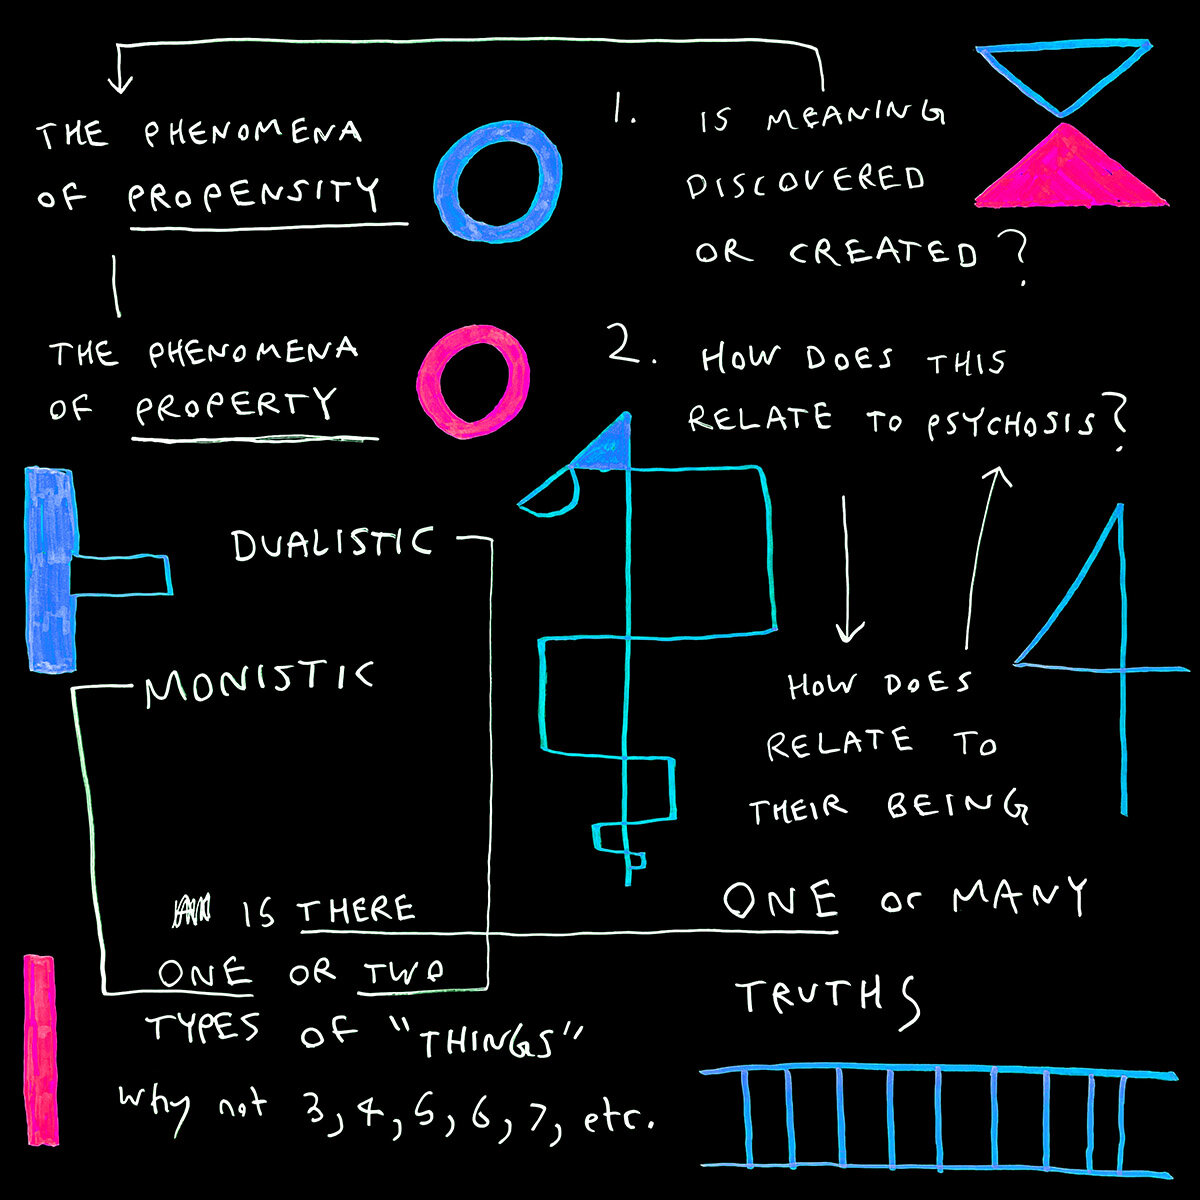 THE PHENOMENA
OF PROPENSITY
THE PHENOMENA
OF PROPERTY
1. IS MEANING
DISCOVERED
OR CREATED?
2. HOW DOES THIS
RELATE TO PSYCHOSIS?
HOW DOES
RELATE TO
THEIR BEING
ONE or MANY
TRUTHS
DUALISTIC
MONISTIC
IS THERE
ONE OR TWO
TYPES OF "THINGS"
Why not 3, 4, 5, 6, 7, etc.
4